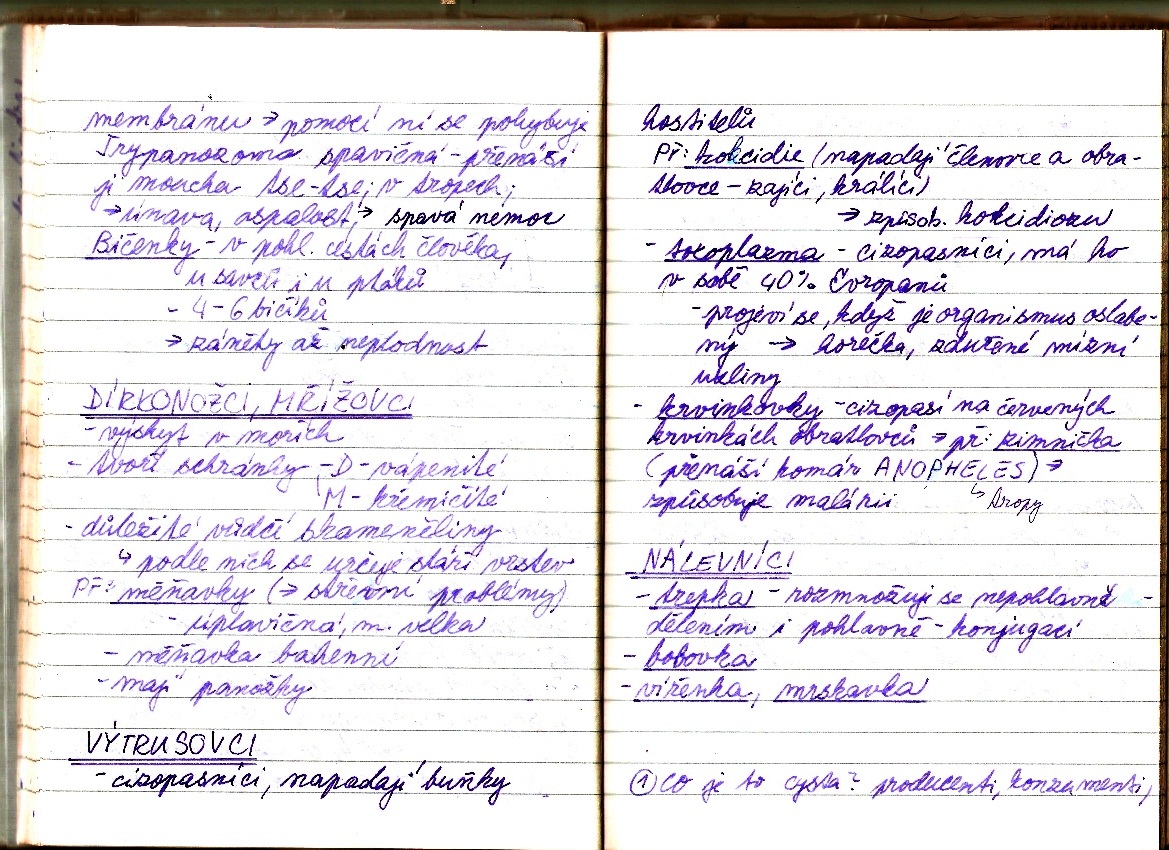 membránu → pomocí ní se pohybuje
Trypanozoma spavičná - přenáší
ji moucha tse-tse; v tropech;
→ únava, ospalost, → spavá nemoc
Bičenky - v pohl. cestách člověka,
u savců i u ptáků
- 4-6 bičíků
→ záněty až neplodnost
DÍRKONOŽCI, MŘÍŽOVCI
- výskyt v mořích
- tvoří schránky - D - vápenité
M - křemičité
- důležité vůdčí zkameněliny
↳ podle nich se určuje stáří vrstev
Př: měňavky (→ střevní problémy)
- úplavičná, m. velká
- měňavka bahenní
- mají panožky
VÝTRUSOVCI
- cizopasníci, napadají buňky
hostitelů
Př: kokcidie (napadají členovce a obra-
tlovce - zajíci, králíci)
→ způsob. kokcidiozu
- toxoplazma - cizopasníci, má ho
v sobě 40% Evropanů
- projeví se, když je organismus oslabe-
ný → horečka, zduřené mízní
uzliny
- krvinkovky - cizopasí na červených
krvinkách obratlovců → př: zimnička
(přenáší komár ANOPHELES) →
způsobuje malárii ↳ tropy
NÁLEVNÍCI
- trepka - rozmnožují se nepohlavně -
dělením i pohlavně - konjugací
- bobovka
- vířenka, mrskavka
① Co je to cysta? producenti, konzumenti,